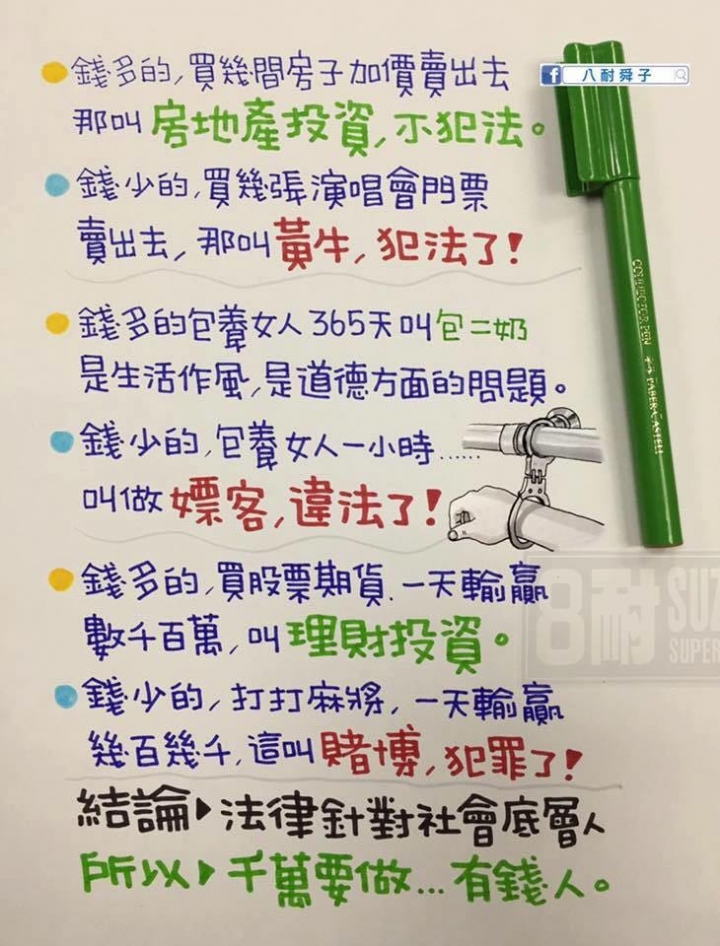 錢多的,買幾間房子加價賣出去
八耐舜子
那叫房地產投資,不犯法。
錢少的,買幾張演唱會門票
賣出去,那叫黃牛,犯法了!
錢多的包養女人365天叫包二奶
是生活作風,是道德方面的問題。
錢少的,包養女人一小時……
叫做嫖客,違法了!
錢多的,買股票期貨.一天輸贏
數千百萬,叫理財投資。
錢少的,打打麻將,一天輸贏
幾百幾千,這叫賭博,犯罪了!
結論▶法律針對社會底層人
所以▶千萬要做...有錢人。
CONNECTOR PEN FABER-CASTELL
8耐 SUZ
SUPER